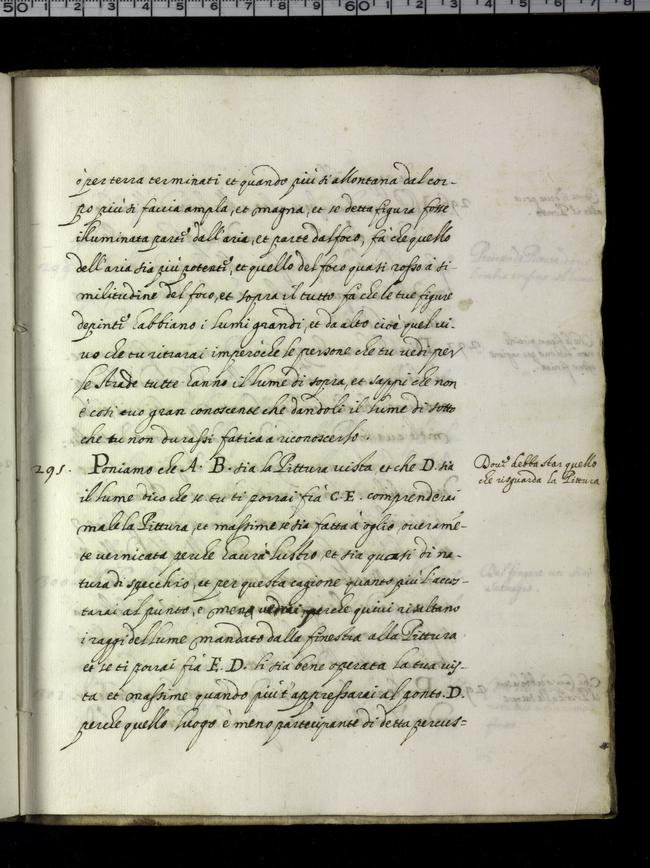 ò per terra terminati et quando più si allontana dal cor-
po più si faccia ampla, et magna, et se detta figura fosse
illuminata parte dall'aria, et parte dal foco, fà che quello
dell'aria sia più potente, et quello del foco quasi rosso à si
militudine del foco, et sopra il tutto fà che le tue figure
depinte habbiano i lumi grandi, et da alto cioè quel vi-
uo che tu ritrarai imperòche le persone che tu uedi per
le strade tutte hanno il lume di sopra, et sappi che non
è cosi tuo gran conoscente che dandoli il lume di sotto
che tu non durassi fatica à riconoscerlo.
291. Poniamo che A. B. sia la Pittura uista et che D. sia
il lume dico che se tu ti porrai frà C. E. comprenderai
male la Pittura, et massime se sia fatta à oglio oueramē-
te vernicata perche haurà lustro, et sia quasi di na-
tura di specchio, et per questa cagione quanto più t'accos-
tarai al punto, e meno vedrai, perche quiui risultano
i raggi del lume mandato dalla finestra alla Pittura
et se ti porrai frà E. D. li sia bene operata la tua vis-
ta et massime quando più t'appressarai al ponto. D.
perche quello luogo è meno partecipante di detta percus=
Doue debba star quello
che risguarda la Pittura